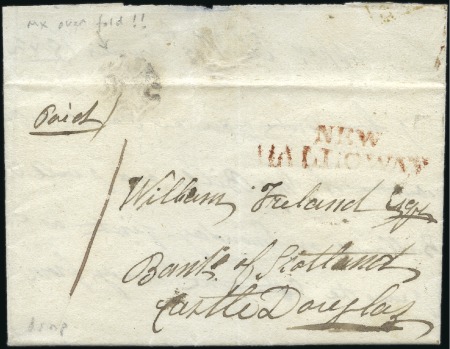 mx over fold !!
Paid
NEW
GALLOWAY
William Ireland Esqr
Bank of Scotland
Castle Douglas